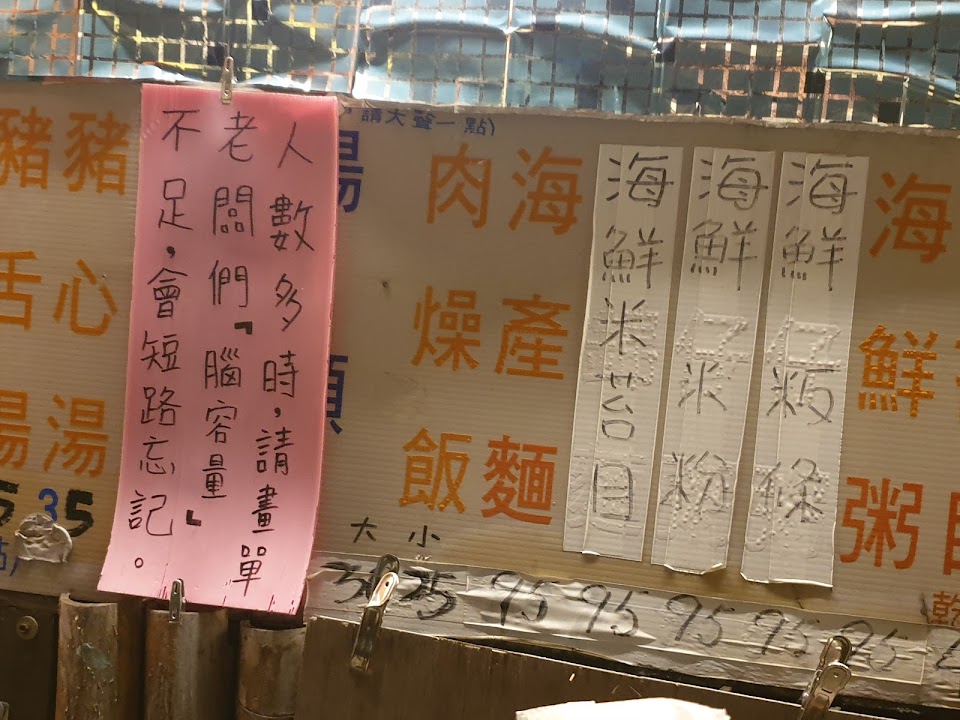 請大聲一點)
海鮮粥
海鮮粄條
海鮮米粉
海鮮米苔目
海產麵
肉燥飯
大 小
25 95 95 95 95 95
人數多時，請畫單
老闆們『腦容量』
不足，會短路忘記。
豬心湯
豬舌湯
35